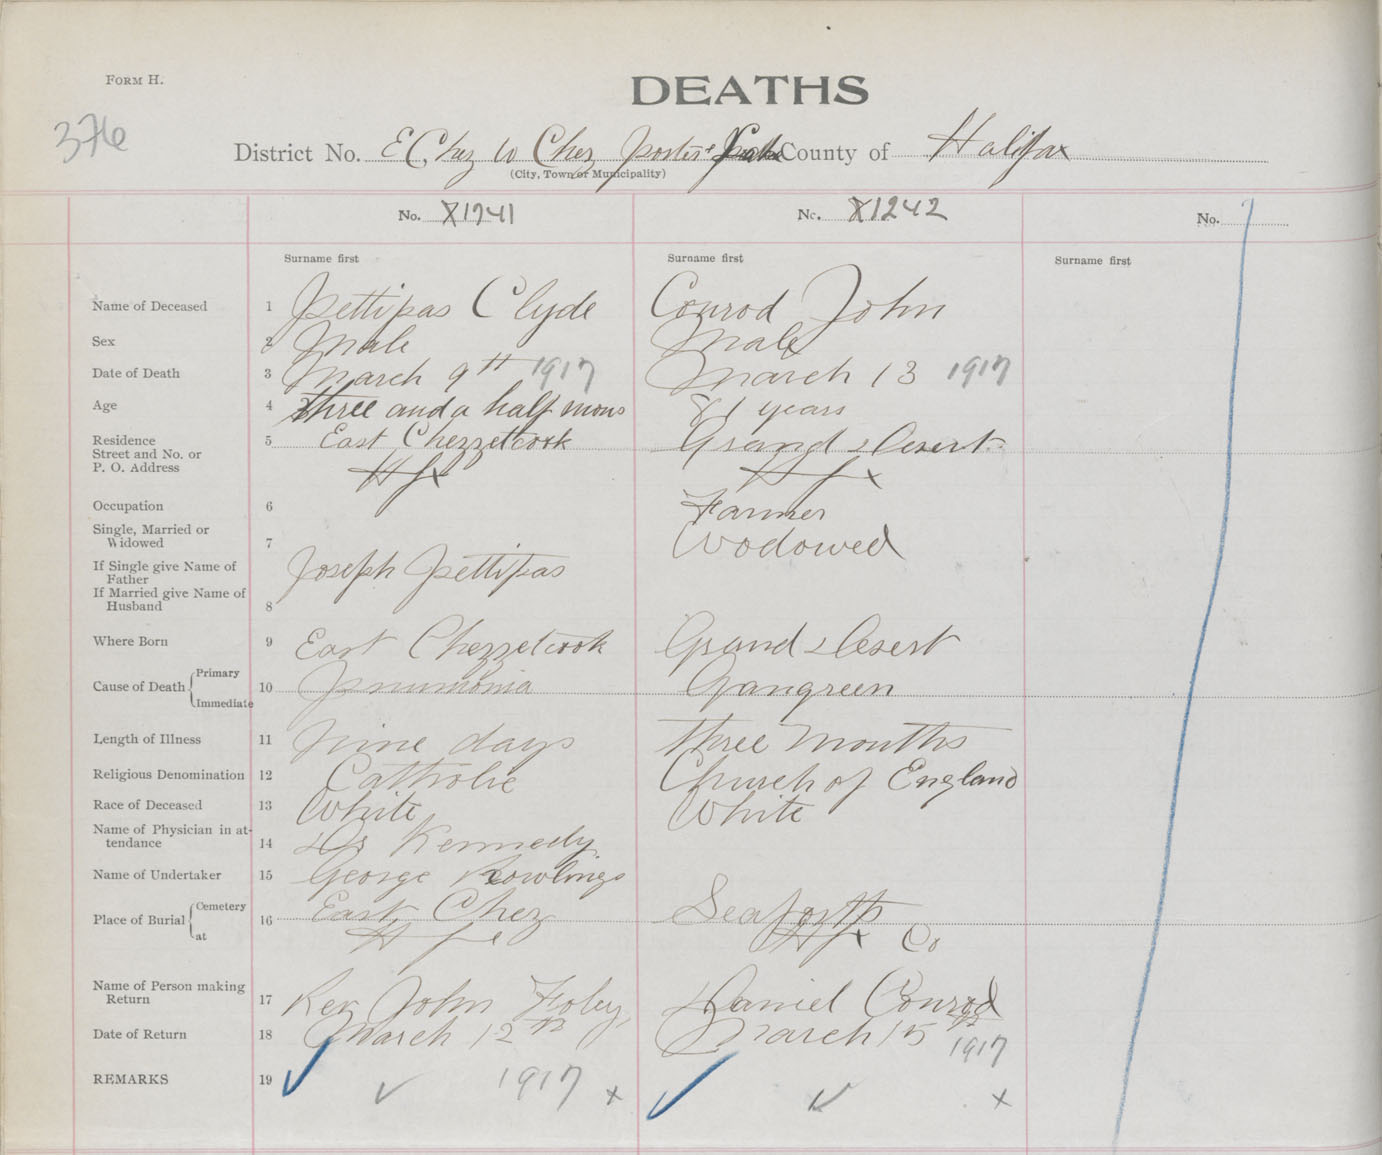 FORM H.
DEATHS
376
District No. E Chez W Chez County of Halifax
(City, Town or Municipality)
No. X1241 No. X1242 No.
Surname first Surname first Surname first
Name of Deceased 1 Pettipas Clyde Conrod John
Sex 2 Male Male
Date of Death 3 March 9th 1917 March 13 1917
Age 4 Three and a half mons 81 years
Residence 5 East Chezzetcook Grand Desert
Street and No. or
P. O. Address Hfx Hfx
Occupation 6 Farmer
Single, Married or
Widowed 7 Wodowed
If Single give Name of
Father Joseph Pettipas
If Married give Name of
Husband 8
Where Born 9 East Chezzetcook Grand Desert
Cause of Death { Primary
Immediate 10 Pnumonia Gangreen
Length of Illness 11 Nine days Three Months
Religious Denomination 12 Catholic Church of England
Race of Deceased 13 White White
Name of Physician in at-
tendance 14 Dr Kennedy
Name of Undertaker 15 George Rowlings
Place of Burial { Cemetery
at 16 East Chez Seaforth
Hfx Hfx Co
Name of Person making
Return 17 Rev John Foley Daniel Conrod
Date of Return 18 March 12th March 15th
1917
REMARKS 19 ✓ ✓ 1917 x ✓ ✓ x